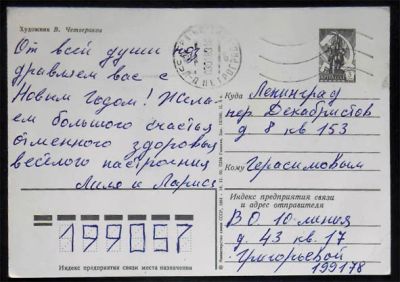 Художник В. Четвериков
От всей души поз
дравляем вас с
Новым Годом! Жела
ем большого счастья
отменного здоровья
весёлого настроения
Лиля и Лариса
Куда Ленинград
пер Декабристов
д 8 кв 153
Кому Герасимовым
Индекс предприятия связи
и адрес отправителя
В.О. 10 линия
д. 43 кв. 17
Григорьевой
199178
199057
Индекс предприятия связи места назначения